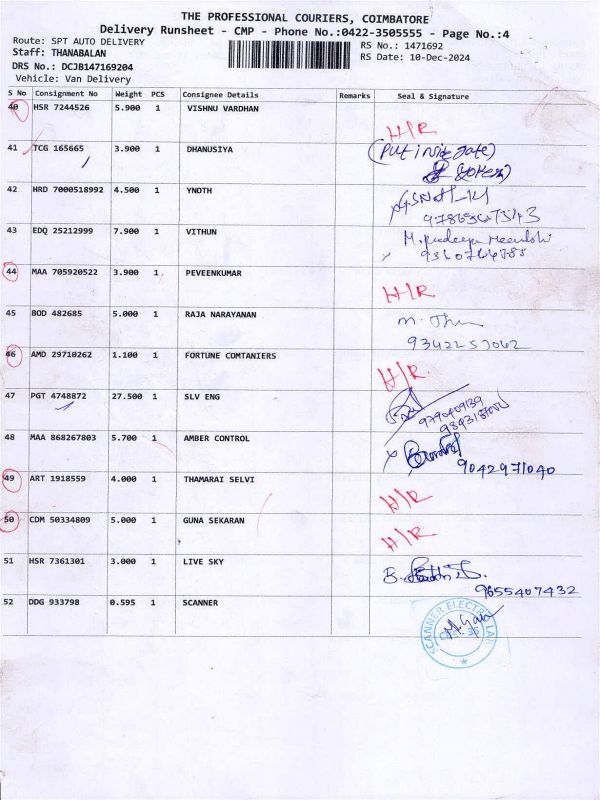 THE PROFESSIONAL COURIERS, COIMBATORE
Delivery Runsheet - CMP - Phone No.:0422-3505555 - Page No.:4
Route: SPT AUTO DELIVERY
RS No.: 1471692
Staff: THANABALAN
RS Date: 10-Dec-2024
DRS No.: DCJB147169204
Vehicle: Van Delivery
S No Consignment No Weight PCS Consignee Details Remarks Seal & Signature
40 HSR 7244526 5.900 1 VISHNU VARDHAN H/R
41 TCG 165665 3.900 1 DHANUSIYA (Put inside gate)
42 HRD 7000518992 4.500 1 YNOTH
43 EDQ 25212999 7.900 1 VITHUN
44 MAA 705920522 3.900 1 PEVEENKUMAR H/R
45 BOD 482685 5.000 1 RAJA NARAYANAN
46 AMD 29710262 1.100 1 FORTUNE COMTANIERS H/R
47 PGT 4748872 27.500 1 SLV ENG
48 MAA 868267803 5.700 1 AMBER CONTROL
9042971040
49 ART 1918559 4.000 1 THAMARAI SELVI H/R
50 CDM 50334809 5.000 1 GUNA SEKARAN H/R
51 HSR 7361301 3.000 1 LIVE SKY
9655407432
52 DDG 933798 0.595 1 SCANNER
SCANNER ELECTRO LAB